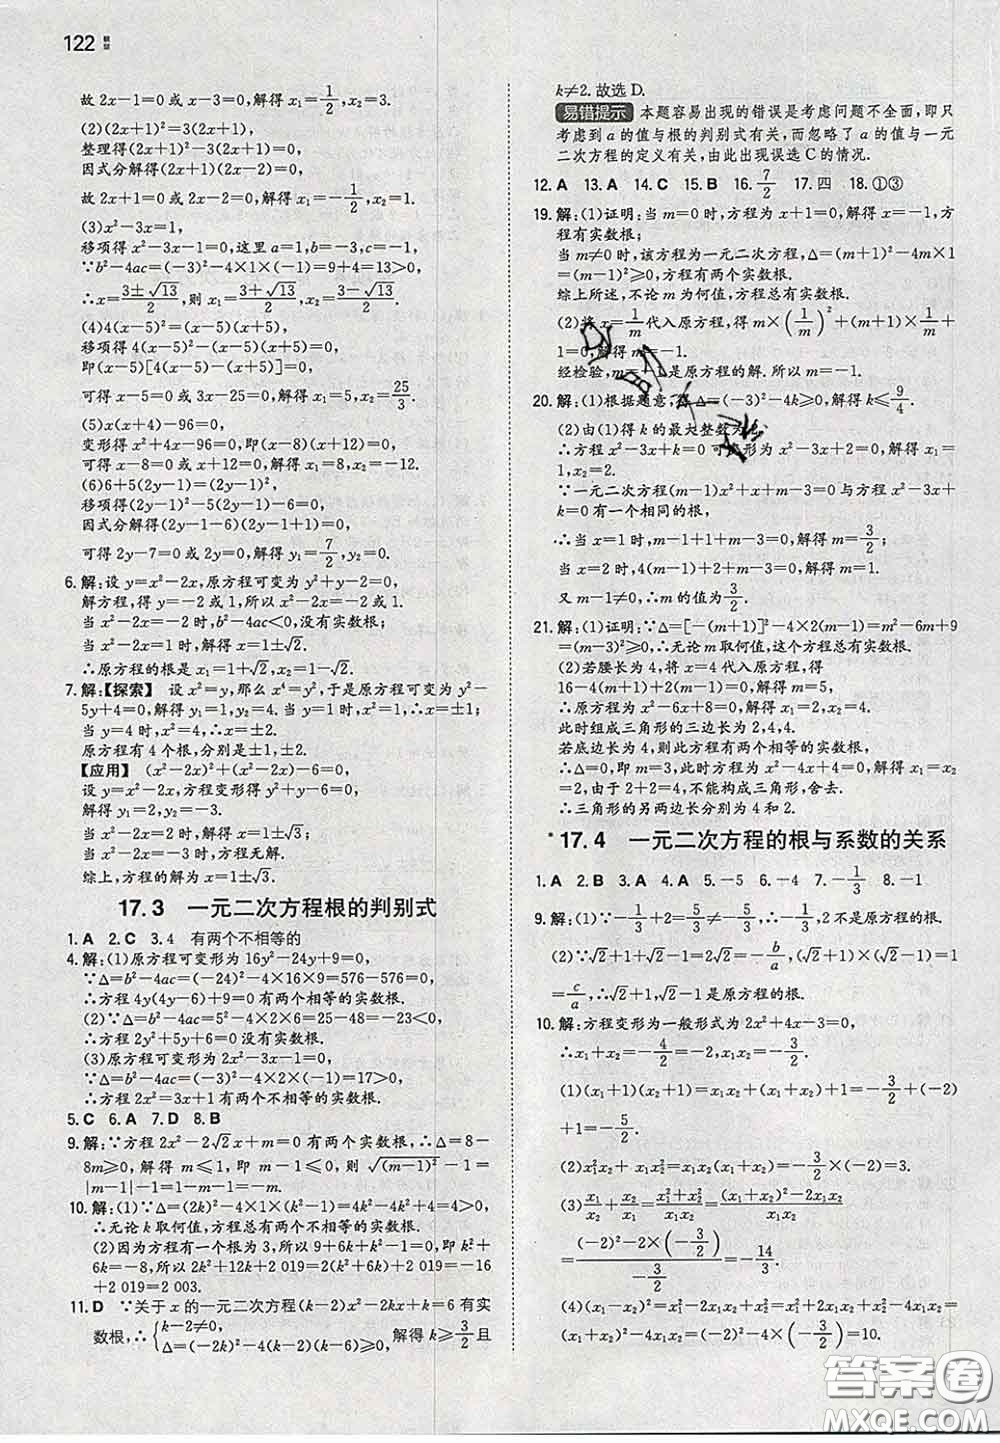 122
故 2x－1＝0 或 x－3＝0,解得 x₁＝1/2,x₂＝3.
(2)(2x＋1)²＝3(2x＋1),
整理得(2x＋1)²－3(2x＋1)＝0,
因式分解得(2x＋1)(2x－2)＝0,
故 2x＋1＝0 或 2x－2＝0,解得 x₁＝－1/2,x₂＝1.
(3)x²－3x＝1,
移项得 x²－3x－1＝0,这里 a＝1,b＝－3,c＝－1,
∵b²－4ac＝(－3)²－4×1×(－1)＝9＋4＝13＞0,
∴x＝(3±√13)/2,则 x₁＝(3＋√13)/2,x₂＝(3－√13)/2.
(4)4(x－5)²＝(x－5)(x＋5),
移项得 4(x－5)²－(x－5)(x＋5)＝0,
即(x－5)[4(x－5)－(x＋5)]＝0,
可得 x－5＝0 或 3x－25＝0,解得 x₁＝5,x₂＝25/3.
(5)x(x＋4)－96＝0,
变形得 x²＋4x－96＝0,即(x－8)(x＋12)＝0,
可得 x－8＝0 或 x＋12＝0,解得 x₁＝8,x₂＝－12.
(6)6＋5(2y－1)＝(2y－1)²,
移项得(2y－1)²－5(2y－1)－6＝0,
因式分解得(2y－1－6)(2y－1＋1)＝0,
可得 2y－7＝0 或 2y＝0,解得 y₁＝7/2,y₂＝0.
6. 解:设 y＝x²－2x,原方程可变为 y²＋y－2＝0,
解方程,得 y＝－2 或 1,所以 x²－2x＝－2 或 1.
当 x²－2x＝－2 时,b²－4ac＜0,没有实数根;
当 x²－2x＝1 时,解得 x＝1±√2.
∴原方程的根是 x₁＝1＋√2,x₂＝1－√2.
7. 解:【探索】 设 x²＝y,那么 x⁴＝y²,于是原方程可变为 y²－
5y＋4＝0,解得 y₁＝1,y₂＝4. 当 y＝1 时,x²＝1,∴x＝±1;
当 y＝4 时,x²＝4,∴x＝±2.
原方程有 4 个根,分别是±1,±2.
【应用】 (x²－2x)²＋(x²－2x)－6＝0,
设 y＝x²－2x,方程变形得 y²＋y－6＝0,
解得 y₁＝2,y₂＝－3.
当 x²－2x＝2 时,解得 x＝1±√3;
当 x²－2x＝－3 时,方程无解.
综上,方程的解为 x＝1±√3.
17. 3 一元二次方程根的判别式
1. A 2. C 3. 4 有两个不相等的
4. 解:(1)原方程可变形为 16y²－24y＋9＝0,
∵Δ＝b²－4ac＝(－24)²－4×16×9＝576－576＝0,
∴方程 4y(4y－6)＋9＝0 有两个相等的实数根.
(2)∵Δ＝b²－4ac＝5²－4×2×6＝25－48＝－23＜0,
∴方程 2y²＋5y＋6＝0 没有实数根.
(3)原方程可变形为 2x²－3x－1＝0,
∵Δ＝b²－4ac＝(－3)²－4×2×(－1)＝17＞0,
∴方程 2x²＝3x＋1 有两个不相等的实数根.
5. C 6. A 7. D 8. B
9. 解:∵方程 2x²－2√2x＋m＝0 有两个实数根,∴Δ＝8－
8m≥0,解得 m≤1,即 m－1≤0,则 √(m－1)²－m＝
|m－1|－m＝1－m－m＝1－2m.
10. 解:(1)∵Δ＝(2k)²－4×1×(k²－1)＝4k²－4k²＋4＝4＞0,
∴无论 k 取何值,方程总有两个不相等的实数根.
(2)因为方程有一个根为 3,所以 9＋6k＋k²－1＝0,即 k²＋
6k＝－8,所以 2k²＋12k＋2 019＝2(k²＋6k)＋2 019＝－16
＋2 019＝2 003.
11. D ∵关于 x 的一元二次方程(k－2)x²－2kx＋k＝6 有实
数根,∴{k－2≠0, Δ＝(－2k)²－4(k－2)(k－6)≥0, 解得 k≥3/2 且
k≠2. 故选 D.
易错提示 本题容易出现的错误是考虑问题不全面,即只
考虑到 a 的值与根的判别式有关,而忽略了 a 的值与一元
二次方程的定义有关,由此出现误选 C 的情况.
12. A 13. A 14. C 15. B 16. 7/2 17. 四 18. ①③
19. 解:(1)证明:当 m＝0 时,方程为 x＋1＝0,解得 x＝－1,方
程有实数根;
当 m≠0 时,该方程为一元二次方程,Δ＝(m＋1)²－4m×
1＝(m－1)²≥0,方程有两个实数根.
综上所述,不论 m 为何值,方程总有实数根.
(2)将 x＝1/m 代入原方程,得 m×(1/m)²＋(m＋1)×1/m＋
1＝0,解得 m＝－1.
经检验,m＝－1是原方程的解. 所以 m＝－1.
20. 解:(1)根据题意,得 Δ＝(－3)²－4k≥0,解得 k≤9/4.
(2)由(1)得 k 的最大整数为2,
∴方程 x²－3x＋k＝0 可变形为 x²－3x＋2＝0,解得 x₁＝
1,x₂＝2.
∵一元二次方程(m－1)x²＋x＋m－3＝0 与方程 x²－3x＋
k＝0 有一个相同的根,
∴当 x＝1 时,m－1＋1＋m－3＝0,解得 m＝3/2;
当 x＝2 时,4(m－1)＋2＋m－3＝0,解得 m＝1.
又 m－1≠0,∴m 的值为 3/2.
21. 解:(1)证明:∵Δ＝[－(m＋1)]²－4×2(m－1)＝m²－6m＋9
＝(m－3)²≥0,∴无论 m 取何值,这个方程总有实数根.
(2)若腰长为 4,将 x＝4 代入原方程,得
16－4(m＋1)＋2(m－1)＝0,解得 m＝5,
∴原方程为 x²－6x＋8＝0,解得 x₁＝2,x₂＝4.
此时组成三角形的三边长为 2,4,4.
若底边长为 4,则此方程有两个相等的实数根,
∴Δ＝0,即 m＝3,此时方程为 x²－4x＋4＝0,解得 x₁＝x₂
＝2,由于 2＋2＝4,不能构成三角形,舍去.
∴三角形的另两边长分别为 4 和 2.
*17. 4 一元二次方程的根与系数的关系
1. A 2. B 3. A 4. A 5. －5 6. －4 7. －1/3 8. －1
9. 解:(1)∵－1/3＋2＝5/3≠－5/3,∴－1/3,2 不是原方程的根.
(2)∵√2＋1＋√2－1＝2√2＝－b/a,(√2＋1)×(√2－1)＝1
＝c/a,∴√2＋1,√2－1 是原方程的根.
10. 解:方程变形为一般形式为 2x²＋4x－3＝0,
∴x₁＋x₂＝－4/2＝－2,x₁x₂＝－3/2.
(1)(x₁＋1)(x₂＋1)＝x₁x₂＋(x₁＋x₂)＋1＝－3/2＋(－2)
＋1＝－5/2.
(2)x₁²x₂＋x₁x₂²＝x₁x₂(x₁＋x₂)＝－3/2×(－2)＝3.
(3)x₁/x₂＋x₂/x₁＝(x₁²＋x₂²)/(x₁x₂)＝((x₁＋x₂)²－2x₁x₂)/(x₁x₂)
＝((－2)²－2×(－3/2))/(－3/2)＝－14/3.
(4)(x₁－x₂)²＝x₁²－2x₁x₂＋x₂²＝(x₁＋x₂)²－4x₁x₂＝
(－2)²－4×(－3/2)＝10.
答案圈
MXQE.COM